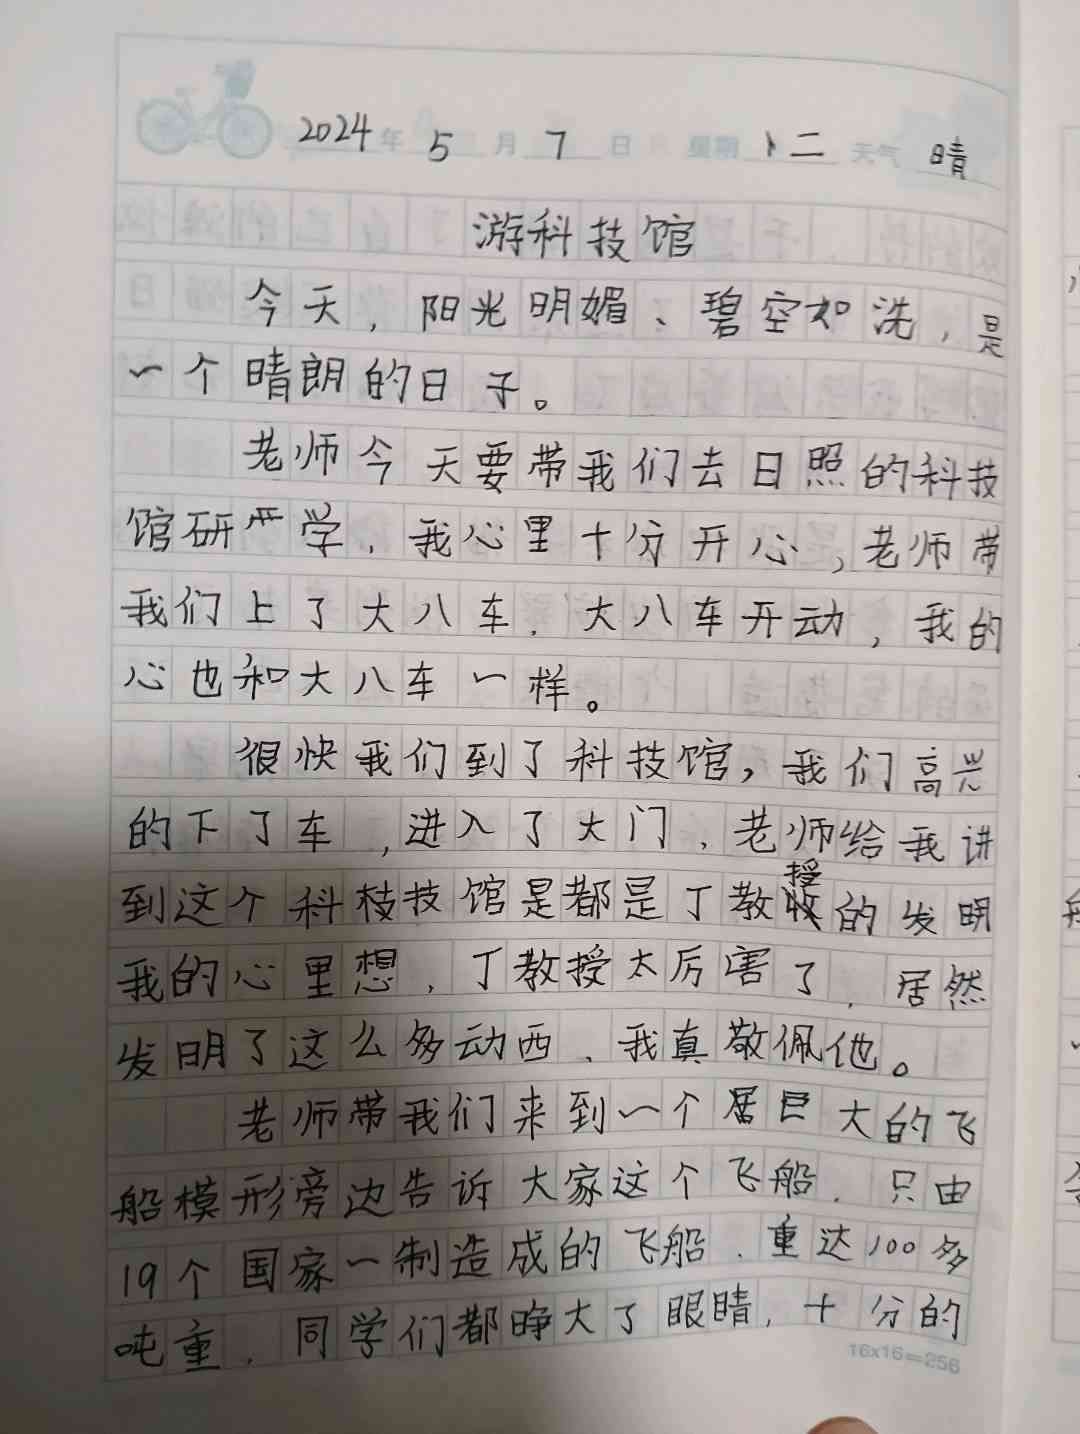 2024年 5月 7日 星期 二 天气 晴
游科技馆
今天，阳光明媚、碧空如洗，是
一个晴朗的日子。
老师今天要带我们去日照的科技
馆研严学，我心里十分开心，老师带
我们上了大八车，大八车开动，我的
心也和大八车一样。
很快我们到了科技馆，我们高兴
的下了车，进入了大门，老师给我讲
到这个科枝技馆是都是丁教授的发明
我的心里想，丁教授太厉害了，居然
发明了这么多动西、我真敬佩他。
老师带我们来到一个居巨大的飞
船模形旁边告诉大家这个飞船．只由
19个国家一制造成的飞船．重达100多
吨重．同学们都睁大了眼睛，十分的
16x16=256